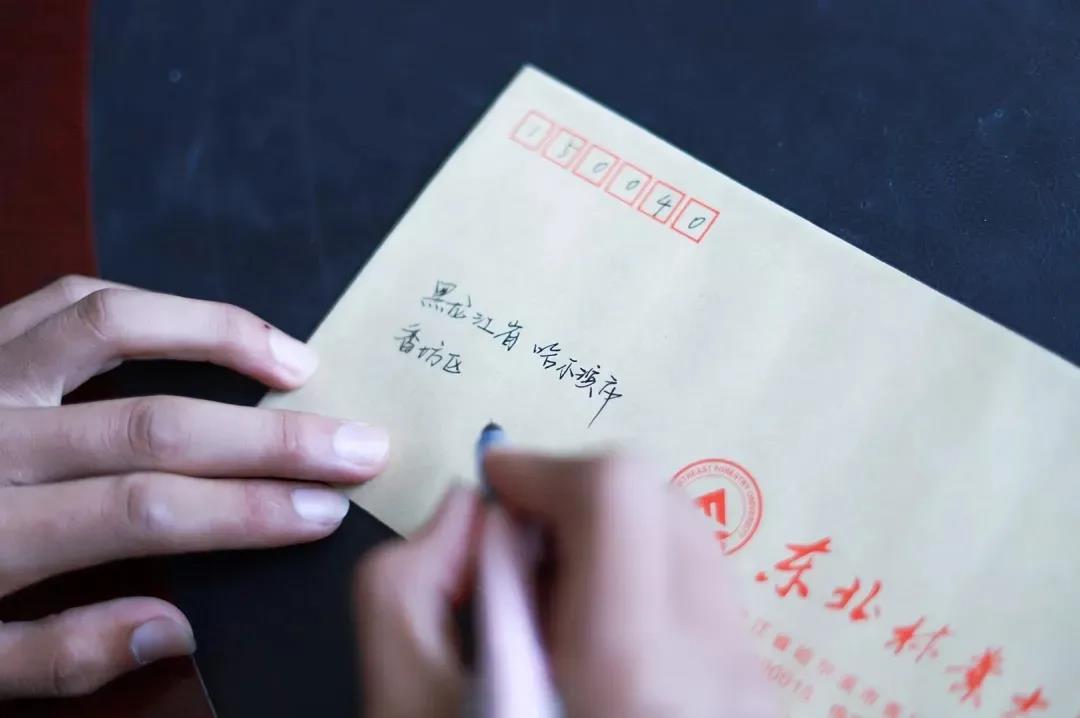 150040
黑龙江省 哈尔滨市
香坊区
NORTHEAST FORESTRY UNIVERSITY
东北林业大
江省哈尔滨市